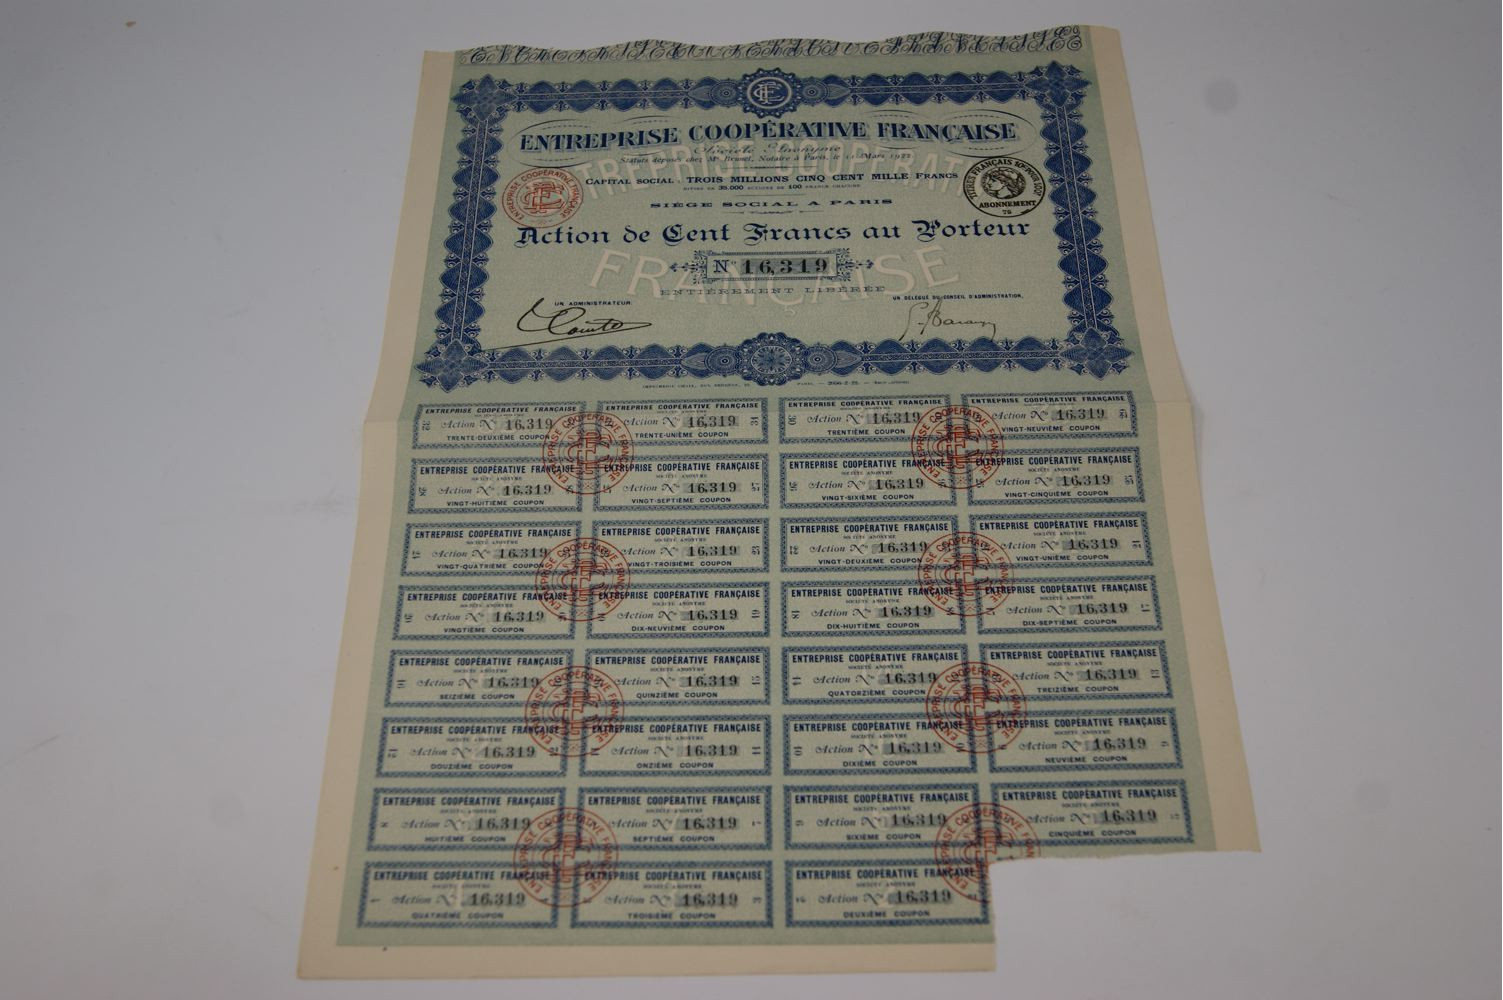 ENTREPRISE COOPÉRATIVE FRANÇAISE
Société Anonyme
Statuts déposés chez Me Brunel, Notaire à Paris, le Mars 1922
CAPITAL SOCIAL : TROIS MILLIONS CINQ CENT MILLE FRANCS
DIVISÉ EN 35.000 ACTIONS DE 100 FRANCS CHACUNE
SIÈGE SOCIAL A PARIS
ENTREPRISE COOPÉRATIVE FRANÇAISE
TITRES FRANÇAIS
ABONNEMENT
Action de Cent Francs au Porteur
No 16,319
ENTIÈREMENT LIBÉRÉE
UN ADMINISTRATEUR
UN DÉLÉGUÉ DU CONSEIL D'ADMINISTRATION,
ENTREPRISE COOPÉRATIVE FRANÇAISE
Action No 16,319
TRENTE-DEUXIÈME COUPON
ENTREPRISE COOPÉRATIVE FRANÇAISE
Action No 16,319
TRENTE-UNIÈME COUPON
ENTREPRISE COOPÉRATIVE FRANÇAISE
Action No 16,319
TRENTIÈME COUPON
ENTREPRISE COOPÉRATIVE FRANÇAISE
Action No 16,319
VINGT-NEUVIÈME COUPON
ENTREPRISE COOPÉRATIVE FRANÇAISE
SOCIÉTÉ ANONYME
Action No 16,319
VINGT-HUITIÈME COUPON
ENTREPRISE COOPÉRATIVE FRANÇAISE
SOCIÉTÉ ANONYME
Action No 16,319
VINGT-SEPTIÈME COUPON
ENTREPRISE COOPÉRATIVE FRANÇAISE
SOCIÉTÉ ANONYME
Action No 16,319
VINGT-SIXIÈME COUPON
ENTREPRISE COOPÉRATIVE FRANÇAISE
SOCIÉTÉ ANONYME
Action No 16,319
VINGT-CINQUIÈME COUPON
ENTREPRISE COOPÉRATIVE FRANÇAISE
SOCIÉTÉ ANONYME
Action No 16,319
VINGT-QUATRIÈME COUPON
ENTREPRISE COOPÉRATIVE FRANÇAISE
SOCIÉTÉ ANONYME
Action No 16,319
VINGT-TROISIÈME COUPON
ENTREPRISE COOPÉRATIVE FRANÇAISE
SOCIÉTÉ ANONYME
Action No 16,319
VINGT-DEUXIÈME COUPON
ENTREPRISE COOPÉRATIVE FRANÇAISE
SOCIÉTÉ ANONYME
Action No 16,319
VINGT-UNIÈME COUPON
ENTREPRISE COOPÉRATIVE FRANÇAISE
SOCIÉTÉ ANONYME
Action No 16,319
VINGTIÈME COUPON
ENTREPRISE COOPÉRATIVE FRANÇAISE
SOCIÉTÉ ANONYME
Action No 16,319
DIX-NEUVIÈME COUPON
ENTREPRISE COOPÉRATIVE FRANÇAISE
SOCIÉTÉ ANONYME
Action No 16,319
DIX-HUITIÈME COUPON
ENTREPRISE COOPÉRATIVE FRANÇAISE
SOCIÉTÉ ANONYME
Action No 16,319
DIX-SEPTIÈME COUPON
ENTREPRISE COOPÉRATIVE FRANÇAISE
SOCIÉTÉ ANONYME
Action No 16,319
SEIZIÈME COUPON
ENTREPRISE COOPÉRATIVE FRANÇAISE
SOCIÉTÉ ANONYME
Action No 16,319
QUINZIÈME COUPON
ENTREPRISE COOPÉRATIVE FRANÇAISE
SOCIÉTÉ ANONYME
Action No 16,319
QUATORZIÈME COUPON
ENTREPRISE COOPÉRATIVE FRANÇAISE
SOCIÉTÉ ANONYME
Action No 16,319
TREIZIÈME COUPON
ENTREPRISE COOPÉRATIVE FRANÇAISE
SOCIÉTÉ ANONYME
Action No 16,319
DOUZIÈME COUPON
ENTREPRISE COOPÉRATIVE FRANÇAISE
SOCIÉTÉ ANONYME
Action No 16,319
ONZIÈME COUPON
ENTREPRISE COOPÉRATIVE FRANÇAISE
SOCIÉTÉ ANONYME
Action No 16,319
DIXIÈME COUPON
ENTREPRISE COOPÉRATIVE FRANÇAISE
SOCIÉTÉ ANONYME
Action No 16,319
NEUVIÈME COUPON
ENTREPRISE COOPÉRATIVE FRANÇAISE
SOCIÉTÉ ANONYME
Action No 16,319
HUITIÈME COUPON
ENTREPRISE COOPÉRATIVE FRANÇAISE
SOCIÉTÉ ANONYME
Action No 16,319
SEPTIÈME COUPON
ENTREPRISE COOPÉRATIVE FRANÇAISE
SOCIÉTÉ ANONYME
Action No 16,319
SIXIÈME COUPON
ENTREPRISE COOPÉRATIVE FRANÇAISE
SOCIÉTÉ ANONYME
Action No 16,319
CINQUIÈME COUPON
ENTREPRISE COOPÉRATIVE FRANÇAISE
SOCIÉTÉ ANONYME
Action No 16,319
QUATRIÈME COUPON
ENTREPRISE COOPÉRATIVE FRANÇAISE
SOCIÉTÉ ANONYME
Action No 16,319
TROISIÈME COUPON
ENTREPRISE COOPÉRATIVE FRANÇAISE
SOCIÉTÉ ANONYME
Action No 16,319
DEUXIÈME COUPON